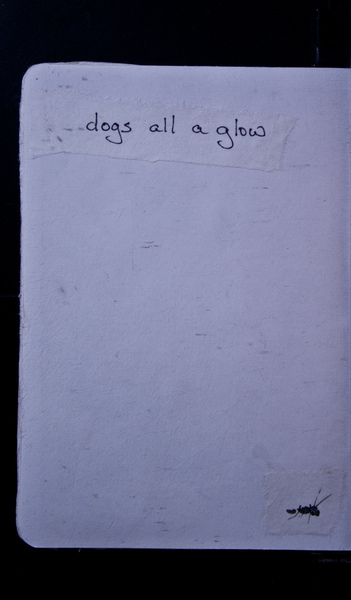 dogs all a glow